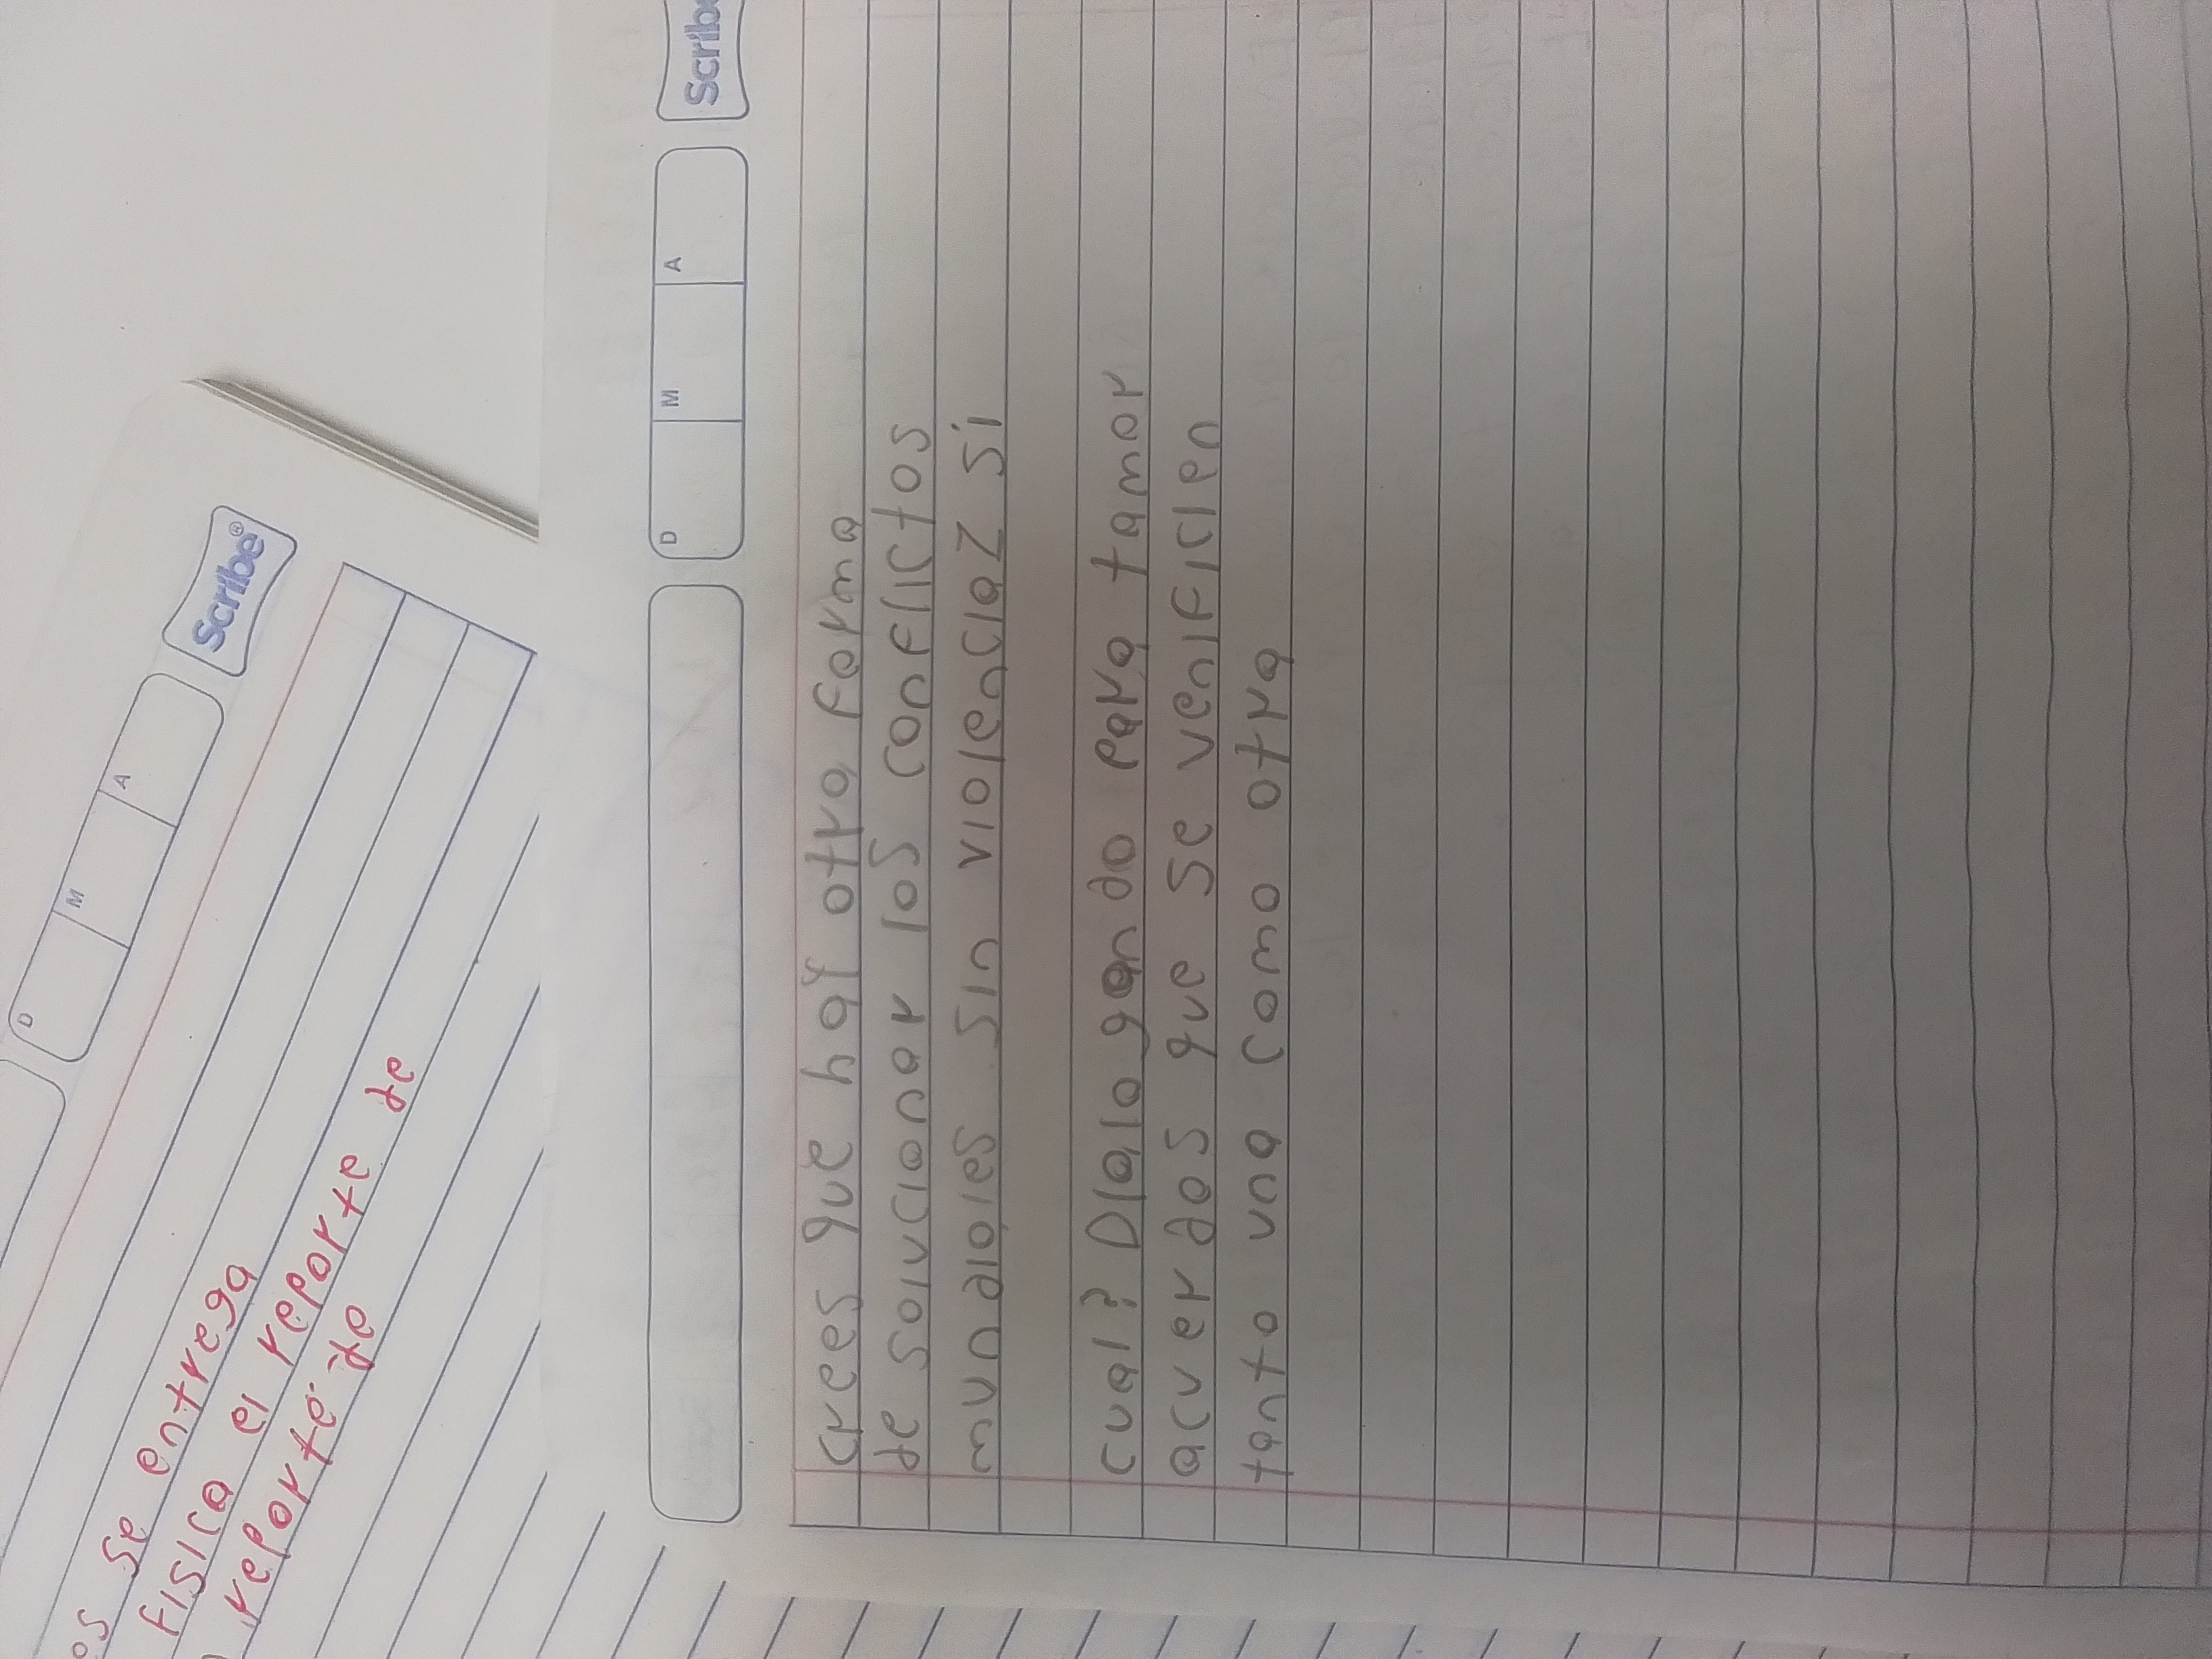 Scribe
D M A
crees que hay otra forma
de solucionar los conflictos
mundiales sin violencia? si
cual? Dialogando para tamar
acuerdos que se venificien
tanto una como otra
Scribe®
D M A
os se entrega
fisica el reporte de
reporte de